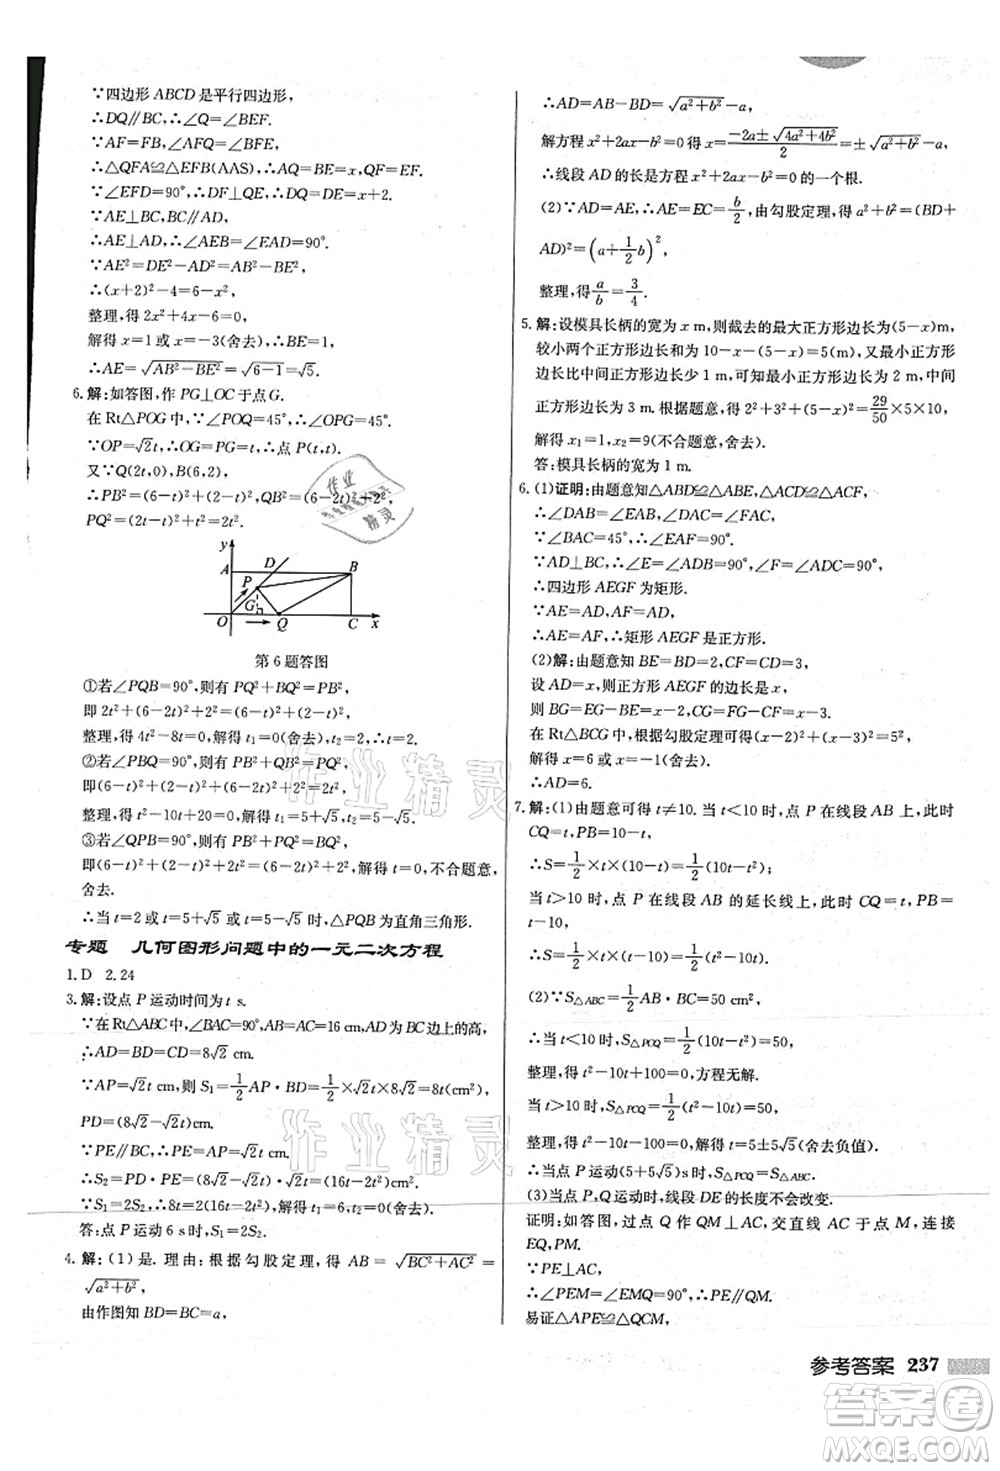 ∵四边形 ABCD 是平行四边形,
∴DQ∥BC,∴∠Q=∠BEF.
∵AF=FB,∠AFQ=∠BFE,
∴△QFA≌△EFB(AAS),∴AQ=BE=x.
∵∠EFD=90°,∴DF⊥QE,∴DQ=DE=x+2.
∵AE⊥BC,BC∥AD,
∴AE⊥AD,∴∠AEB=∠EAD=90°.
∵AE²=DE²-AD²=AB²-BE²,
∴(x+2)²-4=6-x²,
整理,得 2x²+4x-6=0,
解得 x=1或x=-3(舍去),∴BE=1,
∴AE=√(AB²-BE²)=√(6-1)=√5.
6.解:如答图,作 PG⊥OC于点G.
在 Rt△POG 中,∵∠POQ=45°,∴∠OPG=45°.
∵OP=√2t,∴OG=PG=t,∴点 P(t,t).
又∵Q(2t,0),B(6,2),
∴PB²=(6-t)²+(2-t)²,QB²=(6-2t)²+2²,
PQ²=(2t-t)²+t²=2t².
y
A D B
P
G
O Q C x
第 6 题答图
①若∠PQB=90°,则有 PQ²+BQ²=PB²,
即 2t²+(6-2t)²+2²=(6-t)²+(2-t)²,
整理,得 4t²-8t=0,解得 t₁=0(舍去),t₂=2,∴t=2.
②若∠PBQ=90°,则有 PB²+QB²=PQ²,
即(6-t)²+(2-t)²+(6-2t)²+2²=2t²,
整理,得 t²-10t+20=0,解得 t=5±√5.
③若∠QPB=90°,则有 PQ²+PB²=QB²,
即(6-t)²+(2-t)²+2t²=(6-2t)²+2²,解得 t=0,不合题意,
舍去.
∴当 t=2 或 t=5+√5 或 t=5-√5 时,△PQB 为直角三角形.
专题 几何图形问题中的一元二次方程
1.D 2.24
3.解:设点 P 运动时间为 t s.
∵在 Rt△ABC 中,∠BAC=90°,AB=AC=16 cm,AD为BC边上的高,
∴AD=BD=CD=8√2 cm.
∵AP=√2t cm,则 S₁=1/2AP·BD=1/2×8√2×√2t=8t(cm²),
PD=(8√2-√2t)cm.
∵PE∥BC,∴PE=AP=√2t cm,
∴S₂=PD·PE=(8√2-√2t)·√2t cm².
∵S₁=2S₂,∴8t=2(8√2-√2t)·√2t,解得 t=6.
答:点 P 运动 6 s 时,S₁=2S₂.
4.解:(1)是.理由:根据勾股定理,得 AB=√(BC²+AC²)=
√(a²+b²),
由作图知 BD=BC=a,
∴AD=AB-BD=√(a²+b²)-a,
解方程 x²+2ax-b²=0 得 x=(-2a±√(4a²+4b²))/2=±√(a²+b²)-a,
∴线段 AD 的长是方程 x²+2ax-b²=0 的一个根.
(2)∵AD=AE,∴AE=EC=b/2,由勾股定理,得 a²+b²=(BD+
AD)²=(a+1/2b)²,
整理,得 a/b=3/4.
5.解:设模具长柄的宽为 x m,则截去的最大正方形边长为(5-x)m,
较小两个正方形边长之和为 10-x-(5-x)=5(m),又最小正方形边长
比中间正方形边长少 1 m,可知最小正方形边长为 2 m,中间正方
形边长为 3 m.根据题意,得 2²+3²+(5-x)²=29/50×5×10,
解得 x₁=1,x₂=9(不合题意,舍去).
答:模具长柄的宽为 1 m.
6.(1)证明:由题意知△ABD≌△ABE,△ACD≌△ACF,
∴∠DAB=∠EAB,∠DAC=∠FAC.
∵∠BAC=45°,∴∠EAF=90°.
∵AD⊥BC,∴∠E=∠F=90°,
∴四边形 AEGF 为矩形.
∵AE=AD,AF=AD,
∴AE=AF,∴矩形 AEGF 是正方形.
(2)解:由题意知 BE=BD=2,CF=CD=3,
设 AD=x,则正方形 AEGF 的边长是 x,
则 BG=EG-BE=x-2,CG=FG-CF=x-3.
在 Rt△BCG 中,根据勾股定理可得(x-2)²+(x-3)²=5²,
解得 x=6 或 x=-1(舍去),
∴AD=6.
7.解:(1)由题意可得 t≠10. 当 t<10 时,点 P 在线段 AB 上,此时
CQ=t,PB=10-t,
∴S=1/2×t×(10-t)=1/2(10t-t²);
当 t>10 时,点 P 在线段 AB 的延长线上,此时 CQ=t,PB=
t-10,
∴S=1/2×t×(t-10)=1/2(t²-10t).
(2)∵S△ABC=1/2AB·BC=50 cm²,
∴当 t<10 时,S△PCQ=1/2(10t-t²)=50,
整理,得 t²-10t+100=0,方程无解.
当 t>10 时,S△PCQ=1/2(t²-10t)=50,
整理,得 t²-10t-100=0,解得 t=5±5√5(舍去负值).
∴当点 P 运动(5+5√5)s 时,S△PCQ=S△ABC.
(3)当点 P、Q 运动时,线段 DE 的长度不会改变.
证明:如答图,过点 Q 作 QM⊥AC,交直线 AC 于点 M,连接
EQ,PM.
∵PE⊥AC,
∴∠PEM=∠EMQ=90°,∴PE∥QM.
易证△APE≌△QCM,
参考答案 237
作业精灵
作业精灵
作业精灵
答案圈
MXQE.COM